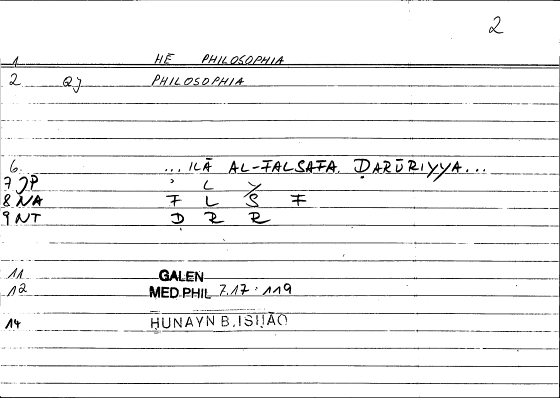 2
1 HĒ PHILOSOPHIA
2 QJ PHILOSOPHIA
6 ...ILĀ AL-FALSAFA ḌARŪRIYYA...
7 JP ʾ L Y
8 NA F L S F
9 NT Ḍ R R
11 GALEN
12 MED PHIL 7.17 : 119
14 ḤUNAYN B. ISḤĀQ